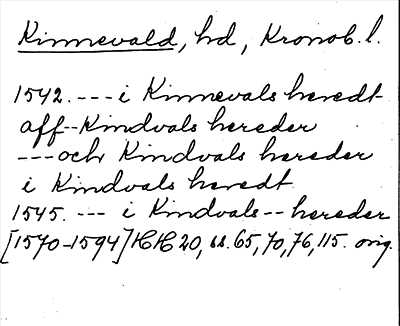 Kinnevald, hd, Kronob. l.
1542. --- i Kinnevals heredt
aff -- Kindvals hereder
--- och Kindvals hereder
i Kindvals heredt
1545. --- i Kindvals -- hereder
[1570-1594] HH 20, ss. 65, 70, 76, 115. orig.